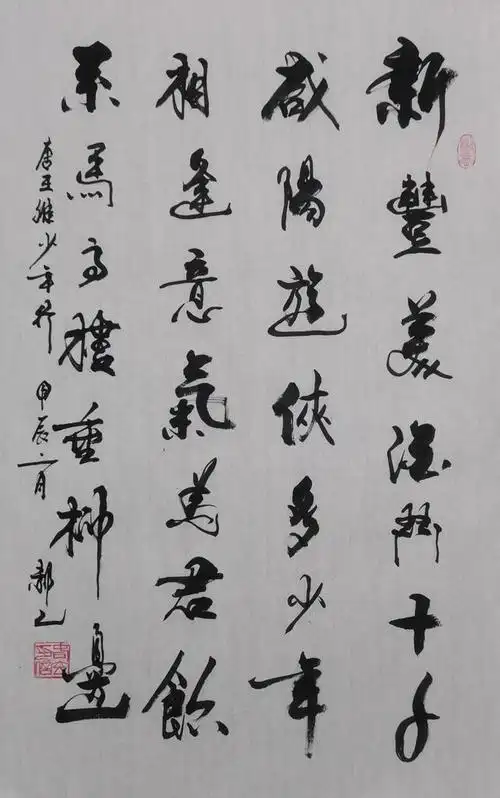 新豐美酒鬥十千
咸陽遊俠多少年
相逢意氣為君飲
系馬高樓垂柳邊
唐王維少年行 甲辰 月 郝